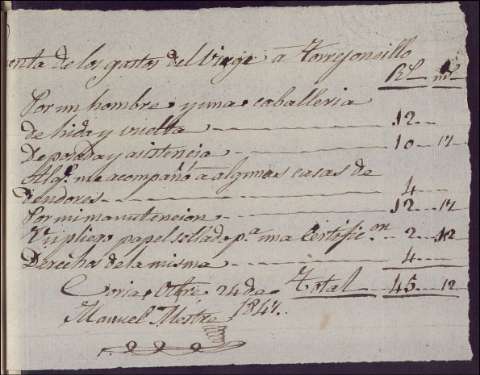 enta de los gastos del Viaje a Torrejoncillo
Rs. ms.
Por un hombre y una caballeria
de hida y vuelta 12
De posada y asistencia 10 17
Al q. me acompañó a algunas casas de
deudores 4
Por mi manutencion 12 17
Un pliego papel sellado pa. una Certificon. 2 12
Derechos de la misma 4
Total 45 12
Coria, Otre. 24 de 1847.
Manuel Mestre